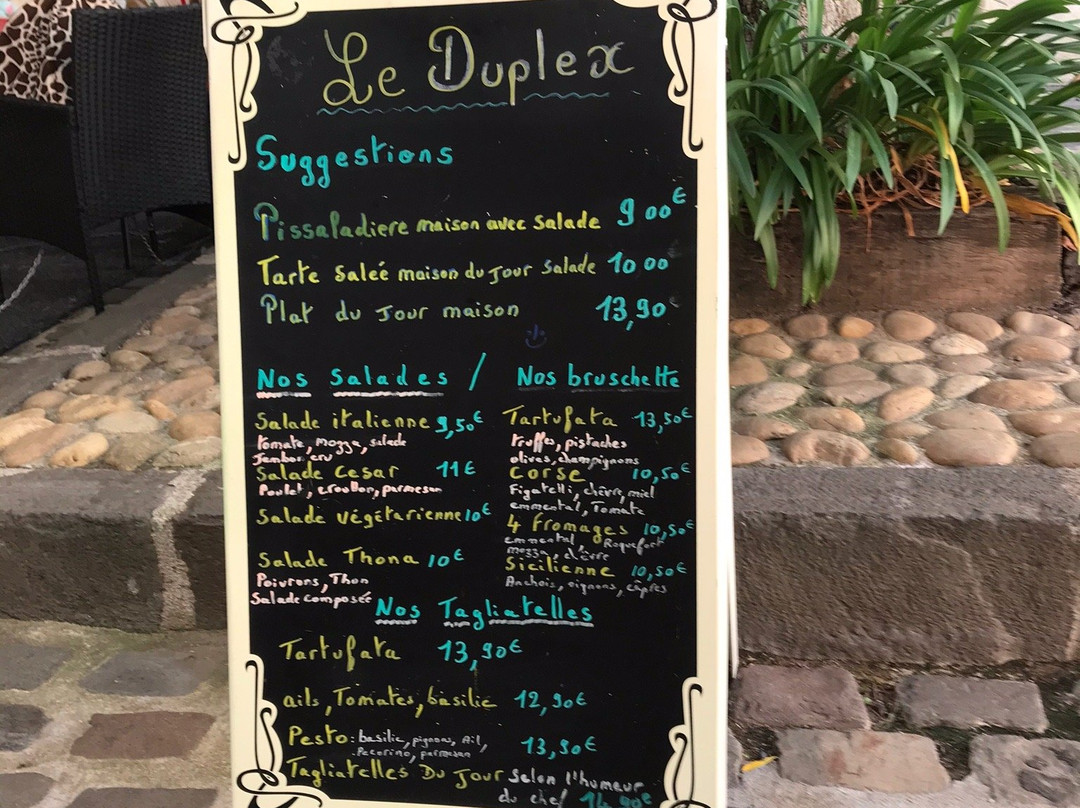 Le Duplex
Suggestions
Pissaladiere maison avec Salade 9 00€
Tarte Saleé maison du Jour Salade 10 00
Plat du Jour maison 13,90€
Nos Salades / Nos bruschette
Salade italienne 9,50€
tomate, mozza, salade
Jambon cru
Salade Cesar 11€
Poulet, croutton, parmesan
Salade végétarienne 10€
Salade Thona 10€
Poivrons, Thon
Salade composée
Tartufata 13,50€
truffes, pistaches
olives, champignons
Corse 10,50€
Figatelli, chèvre, miel
emmental, Tomate
4 fromages 10,50€
emmental, Roquefort
mozza, chèvre
Sicilienne 10,50€
Anchois, oignons, câpres
Nos Tagliatelles
Tartufata 13,90€
ails, Tomates, basilic 12,90€
Pesto: basilic, pignons, Ail, 13,90€
Pecorino, parmesan
Tagliatelles Du Jour Selon l'humeur
du chef 14,90€